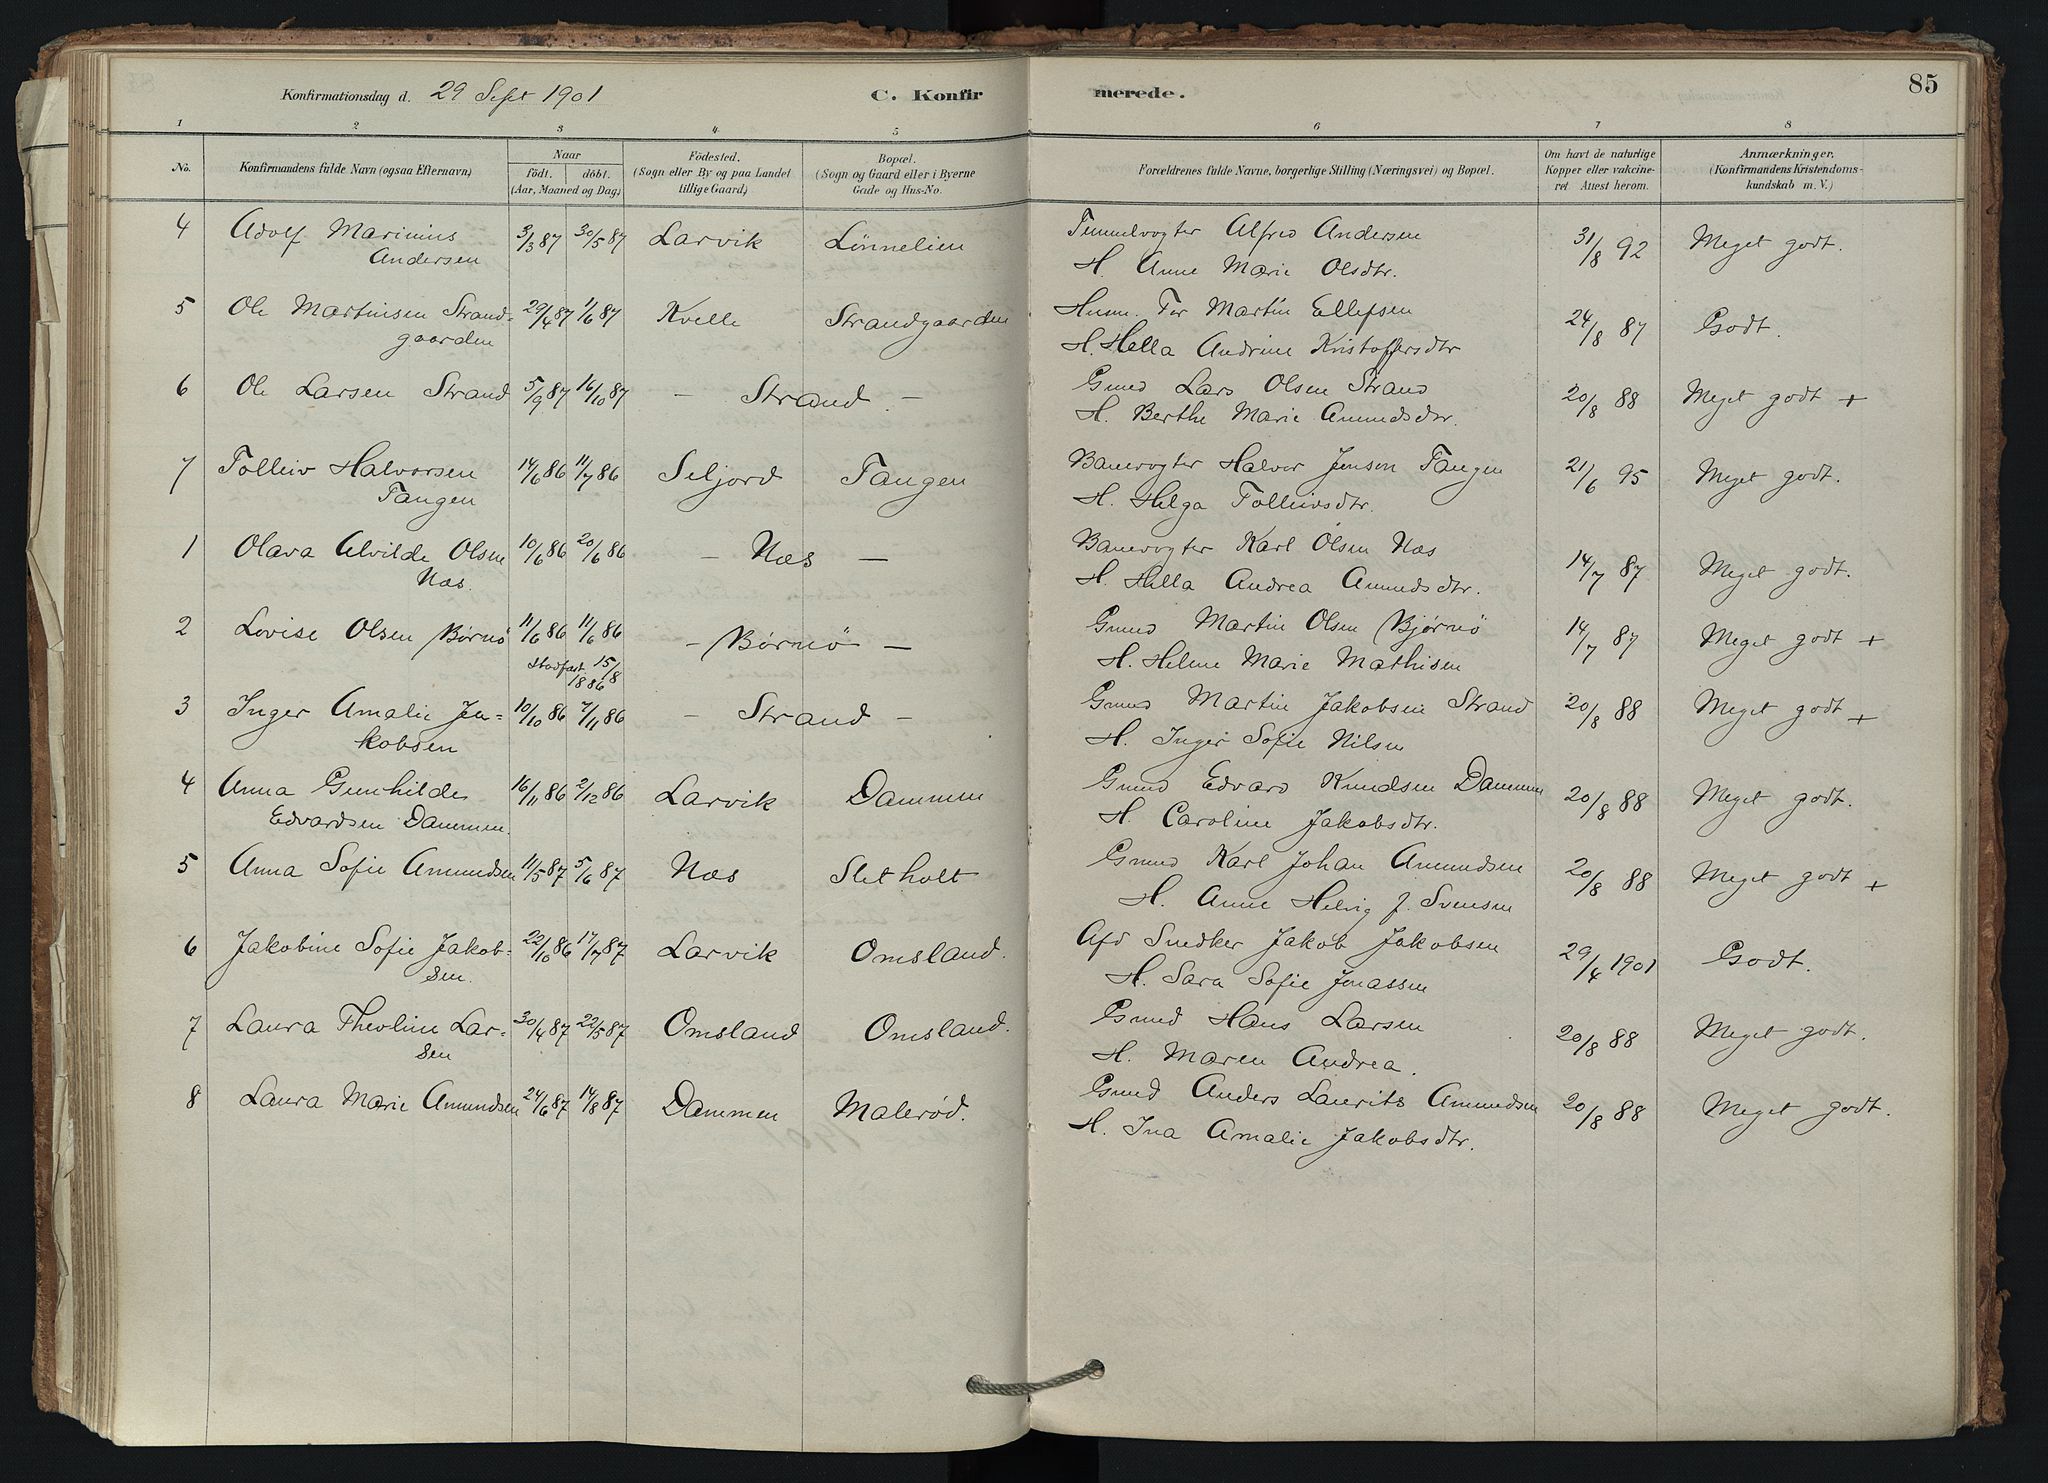 Konfirmationsdag d. 29 Sept 1901 C. Konfirmerede. 85
1 2 3 4 5 6 7 8
No. Konfirmandens fulde Navn (ogsaa Efternavn) Naar födt. döbt. (Aar, Maaned og Dag) Födested. (Sogn eller By og paa Landet tillige Gaard) Bopæl. (Sogn og Gaard eller i Byerne Gade og Hus-No. Forældrenes fulde Navne, borgerlige Stilling (Næringsvei) og Bopæl. Om havt de naturlige Kopper eller vakcineret Attest herom. Anmærkninger. (Konfirmandens Kristendomskundskab m. V.)
4 Adolf Marinius 3/3 87 30/5 87 Larvik Lønnelien Tunnelvogter Alfred Andersen 31/8 92 Meget godt.
Andersen H Anne Marie Olsdtr.
5 Ole Martinsen Strand- 29/4 87 11/6 87 Kvelle Strandgaarden Husm. Tor Martin Ellefsen 24/8 87 Godt.
gaarden H. Hella Andrine Kristoffersdtr
6 Ole Larsen Strand 5/9 87 16/10 87 - Strand - Gmd Lars Olsen Strand 20/8 88 Meget godt +
H. Berthe Marie Amundsdtr.
7 Tolleiv Halvorsen 14/6 86 11/7 86 Seljord Tangen Banevogter Halvor Jenson Tangen 21/6 95 Meget godt.
Tangen H. Helga Tolleivsdtr.
1 Olava Alvilde Olsen 10/6 86 20/6 86 - Næs - Banevogter Karl Olsen Næs 14/7 87 Meget godt.
Næs. H. Hella Andrea Amundsdtr.
2 Lovise Olsen Børnø 11/6 86 11/6 86 - Børnø - Gmd Martin Olsen Bjørnø 14/7 87 Meget godt +
Stadfæst 15/8 1886 H. Helene Marie Mathisen
3 Inger Amalie Ja- 10/10 86 7/11 86 - Strand - Gmd Martin Jakobsen Strand 20/8 88 Meget godt +
kobsen H. Inger Sofie Nilsen
4 Anna Gunhilde 16/11 86 2/12 86 Larvik Dammen Gmd Edvard Knudsen Dammen 20/8 88 Meget godt.
Edvardsen Dammen. H. Caroline Jakobsdtr.
5 Anna Sofie Amundsen 11/5 87 5/6 87 Næs Sletholt Gmd Karl Johan Amundsen 20/8 88 Meget godt +
H. Anne Helvig f. Svensen
6 Jakobine Sofie Jakob- 22/10 86 17/7 87 Larvik Omsland. Afd Snedker Jakob Jakobsen 29/4 1901 Godt.
sen. H. Sara Sofie Jonassen
7 Laura Theoline Lar- 30/4 87 22/5 87 Omsland Omsland. Gmd Hans Larsen 20/8 88 Meget godt.
sen H. Maren Andrea.
8 Laura Marie Amundsen 24/6 87 14/8 87 Dammen Malerød. Gmd Anders Laurits Amundsen 20/8 88 Meget godt.
H. Ina Amalie Jakobsdtr.